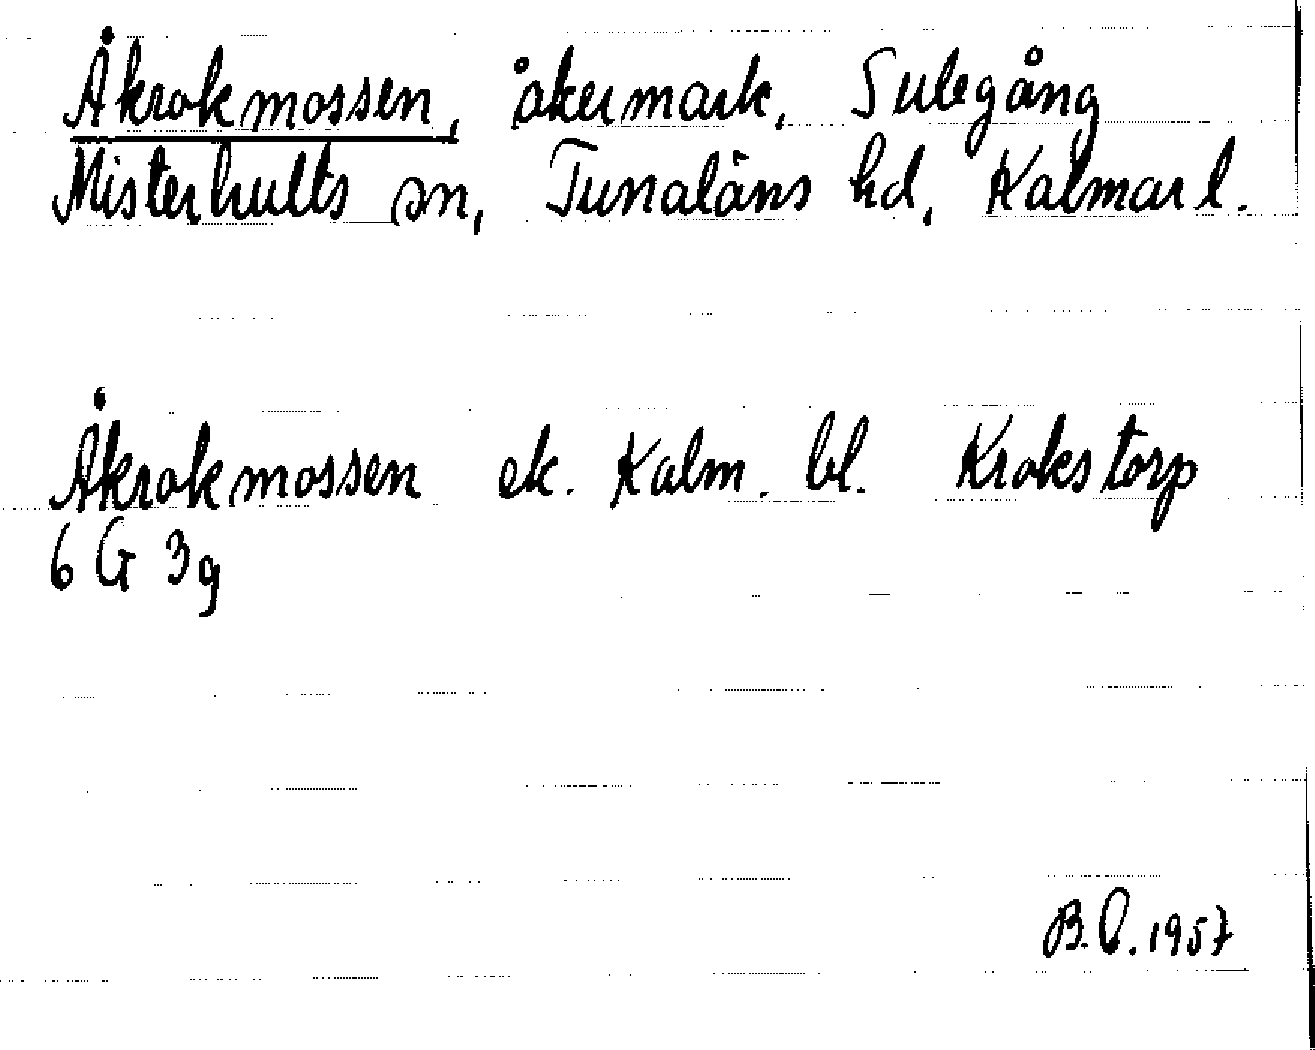 Åkrokmossen, åkermark, Sulegång
Misterhults sn, Tunaläns hd, Kalmar l.
Åkrokmossen ek. Kalm. bl. Krokstorp
6 G 3g
B.O. 1957